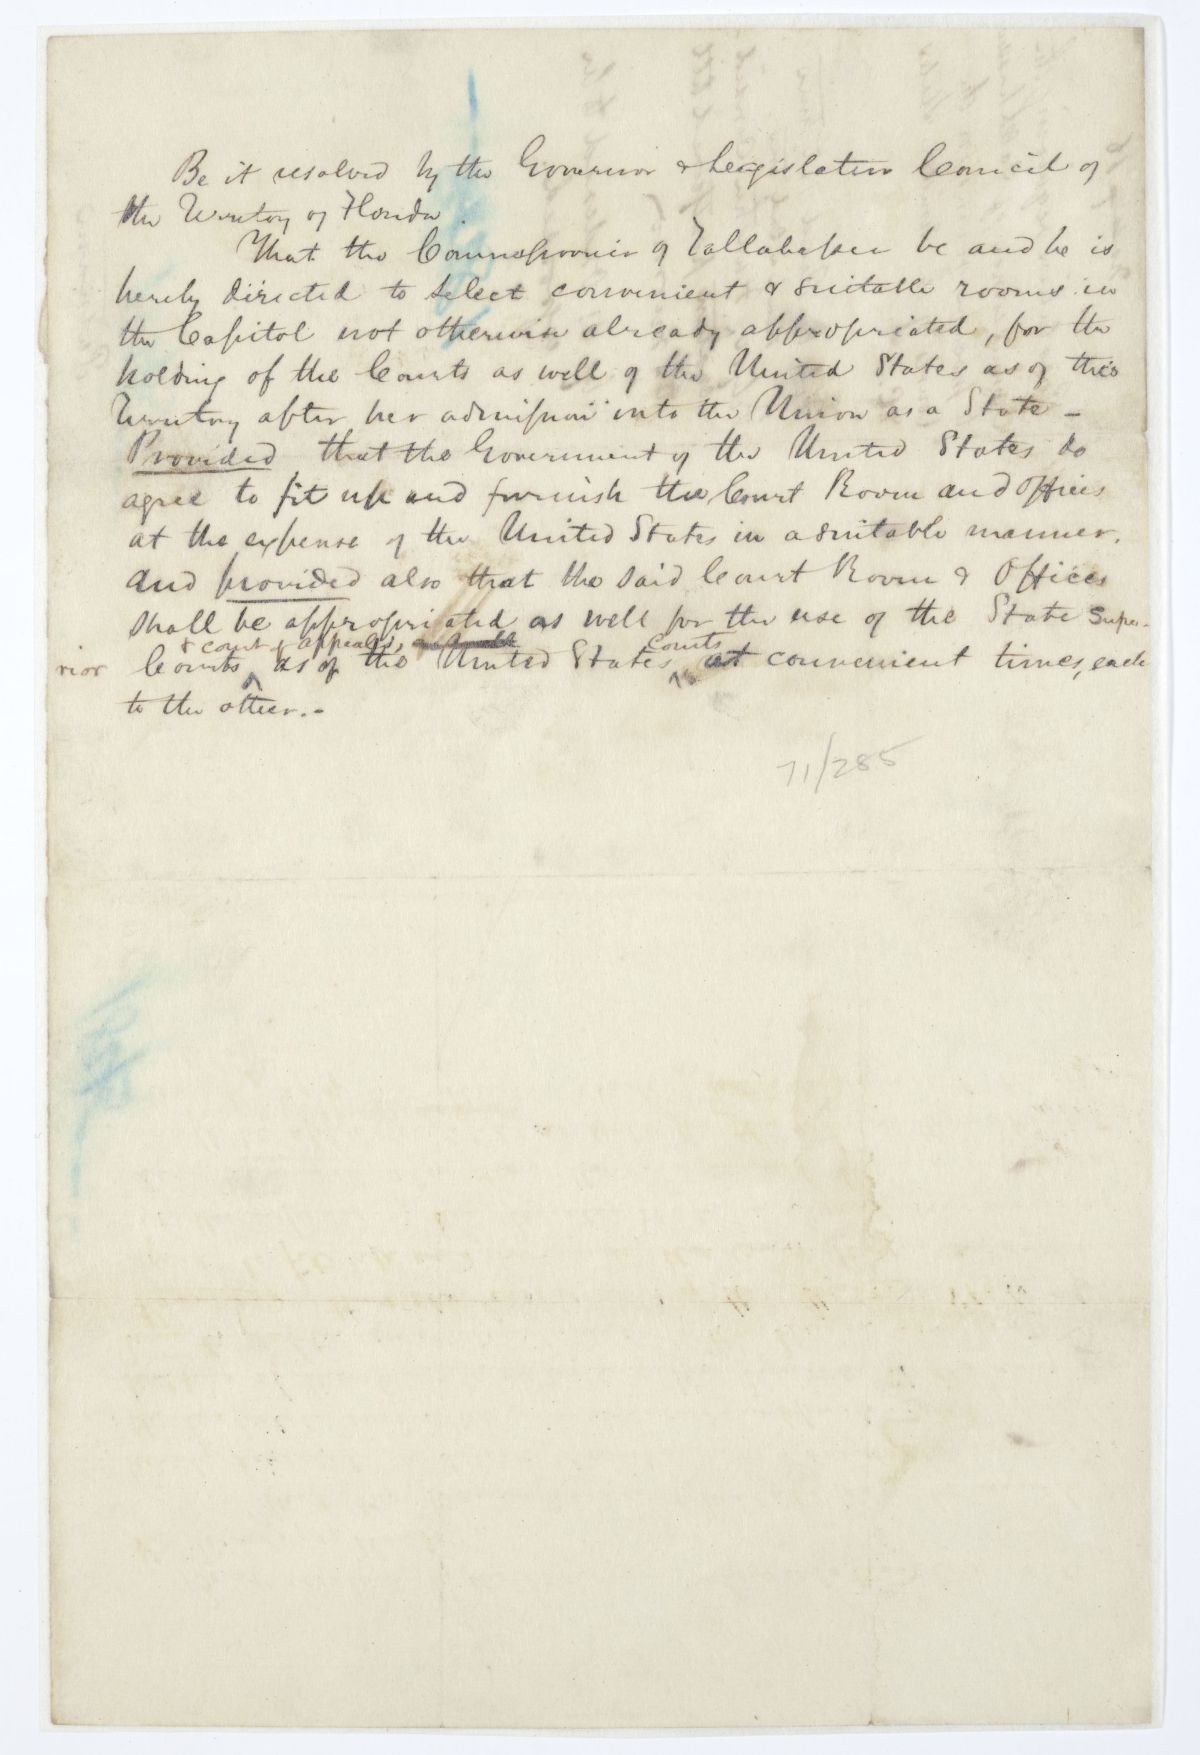 Be it resolved by the Governor & Legislative Council of
the Territory of Florida.
That the Commissioner of Tallahassee be and he is
hereby directed to select convenient & suitable rooms in
the Capitol not otherwise already appropriated, for the
holding of the Courts as well of the United States as of this
Territory after her admission into the Union as a State -
Provided that the Government of the United States do
agree to fit up and furnish the Court Room and offices
at the expense of the United States in a suitable manner.
and provided also that the said Court Room & Offices
shall be appropriated as well for the use of the State Supe-
& court of appeals, Courts
rior Courts ^ as of the United States ^ at convenient times, each
to the other.-
71/285